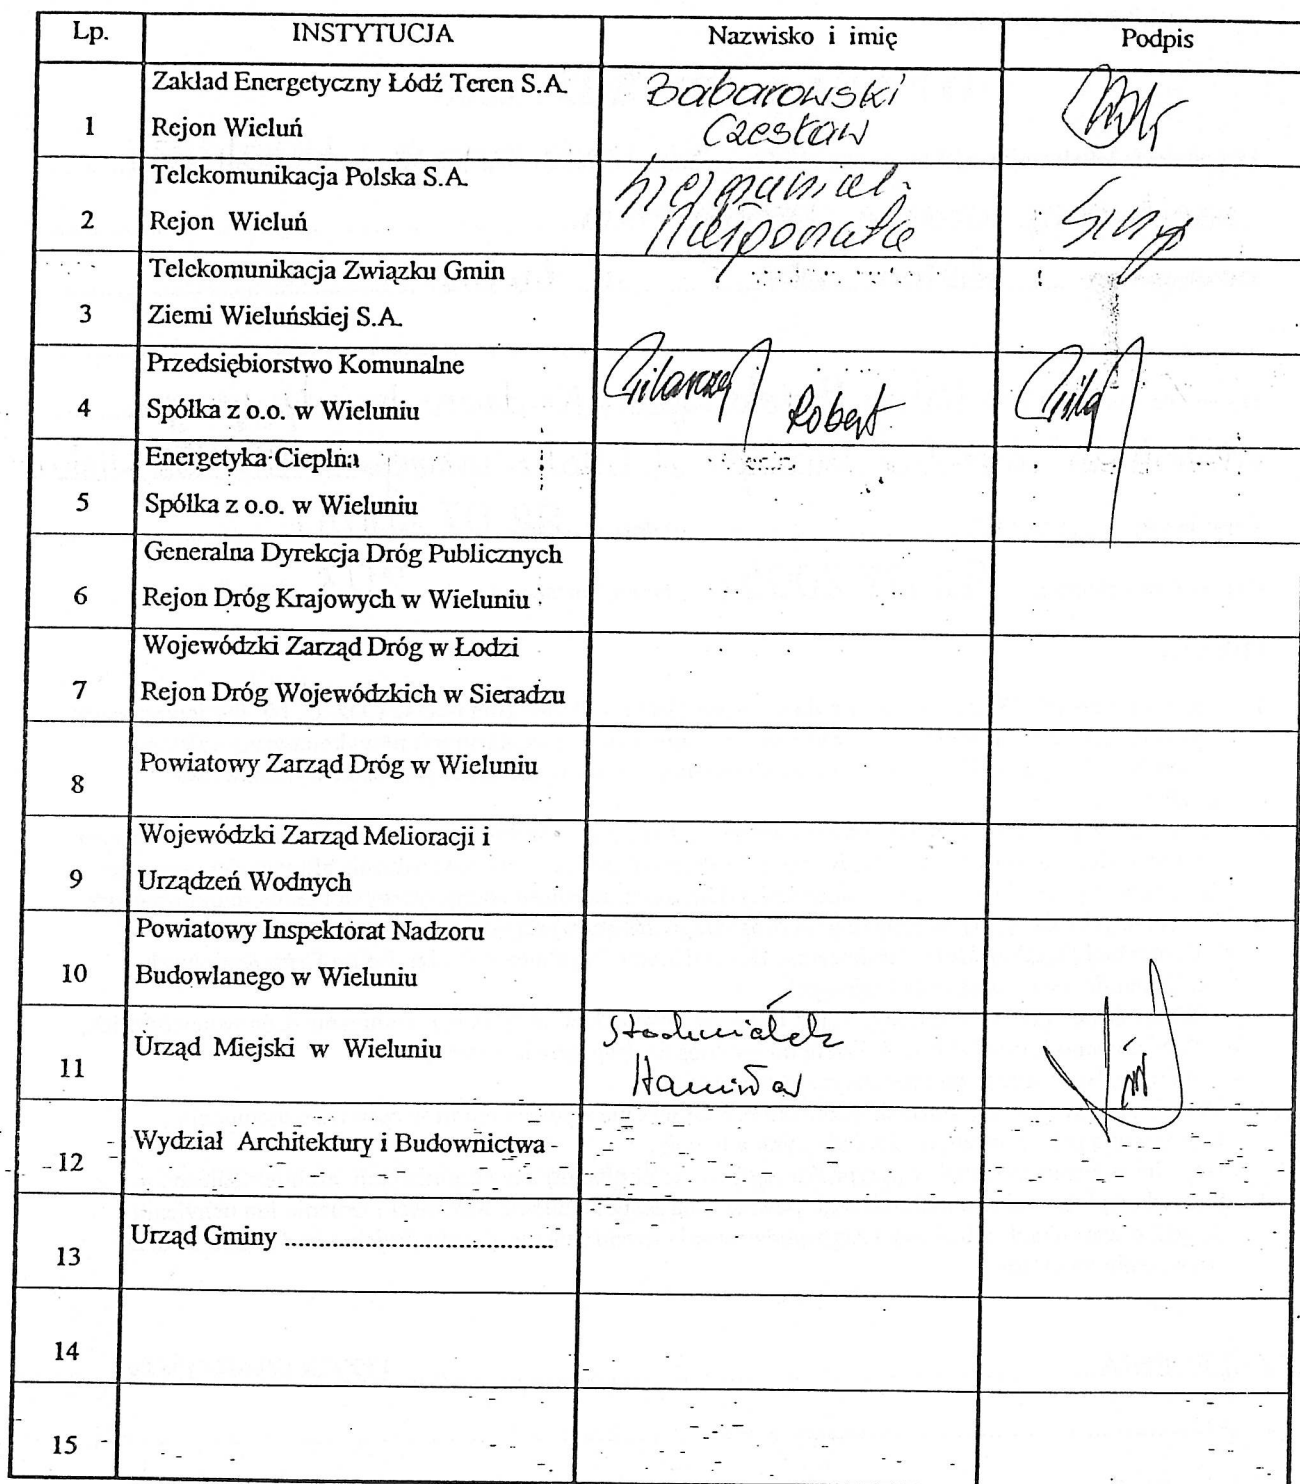 Lp. INSTYTUCJA Nazwisko i imię Podpis
Zakład Energetyczny Łódź Teren S.A. Babarowski
1 Rejon Wieluń Czesław
Telekomunikacja Polska S.A.
2 Rejon Wieluń
Telekomunikacja Związku Gmin
3 Ziemi Wieluńskiej S.A.
Przedsiębiorstwo Komunalne
4 Spólka z o.o. w Wieluniu Robert
Energetyka Cieplna
5 Spólka z o.o. w Wieluniu
Generalna Dyrekcja Dróg Publicznych
6 Rejon Dróg Krajowych w Wieluniu
Wojewódzki Zarząd Dróg w Łodzi
7 Rejon Dróg Wojewódzkich w Sieradzu
Powiatowy Zarząd Dróg w Wieluniu
8
Wojewódzki Zarząd Melioracji i
9 Urządzeń Wodnych
Powiatowy Inspektorat Nadzoru
10 Budowlanego w Wieluniu
11 Urząd Miejski w Wieluniu
12 Wydział Architektury i Budownictwa
13 Urząd Gminy ....................................
14
15